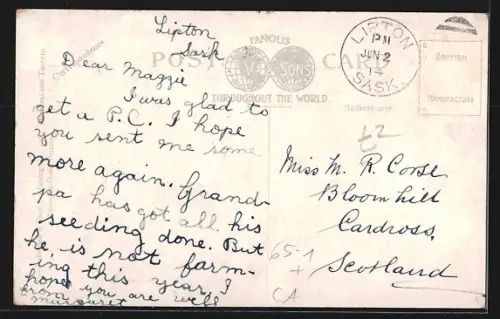 Lipton
Sask
Dear Maggie
I was glad to
get a P.C. I hope
you sent me some
more again. Grand-
pa has got all his
seeding done. But
he is not farm-
ing this year. I
hope you are well
from Margaret
FAMOUS
POST CARD
& SONS
THROUGHOUT THE WORLD.
LIPTON
PM
JUN 2
14
SASK
British
Manufacture
Address only
Miss M. R. Corse
Bloomhill
Cardross,
Scotland
65-1
+
CA